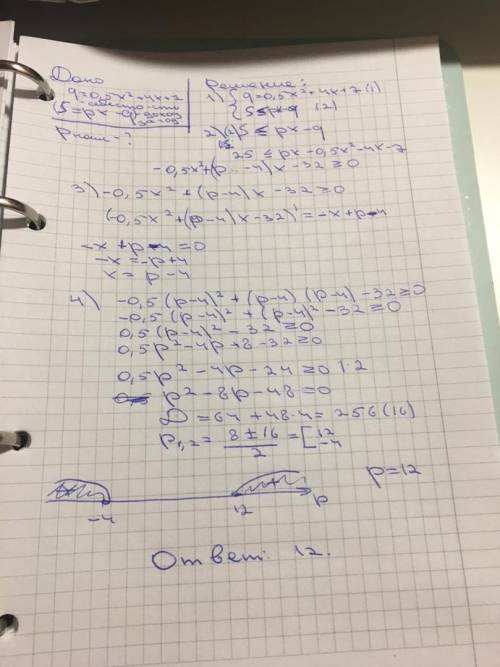 Дано
q=0,5x²+4x+7
5=px-q доход
P наим-?
Решение:
1) { q=0,5x²+4x+7 (1)
{ 5≤px-q (2)
2) 5 ≤ px-q
25 ≤ px-0,5x²-4x-7
-0,5x²+(p-4)x-32≥0
3) -0,5x²+(p-4)x-32≥0
(-0,5x²+(p-4)x-32)'=-x+p-4
-x+p-4=0
-x=-p+4
x=p-4
4) -0,5(p-4)²+(p-4)(p-4)-32≥0
-0,5(p-4)²+(p-4)²-32≥0
0,5(p-4)²-32≥0
0,5p²-4p+8-32≥0
0,5p²-4p-24≥0 |·2
p²-8p-48=0
D=64+48·4=256(16)
P₁,₂=(8±16)/2=[12
-4
p=12
-4 12 p
Ответ: 12.